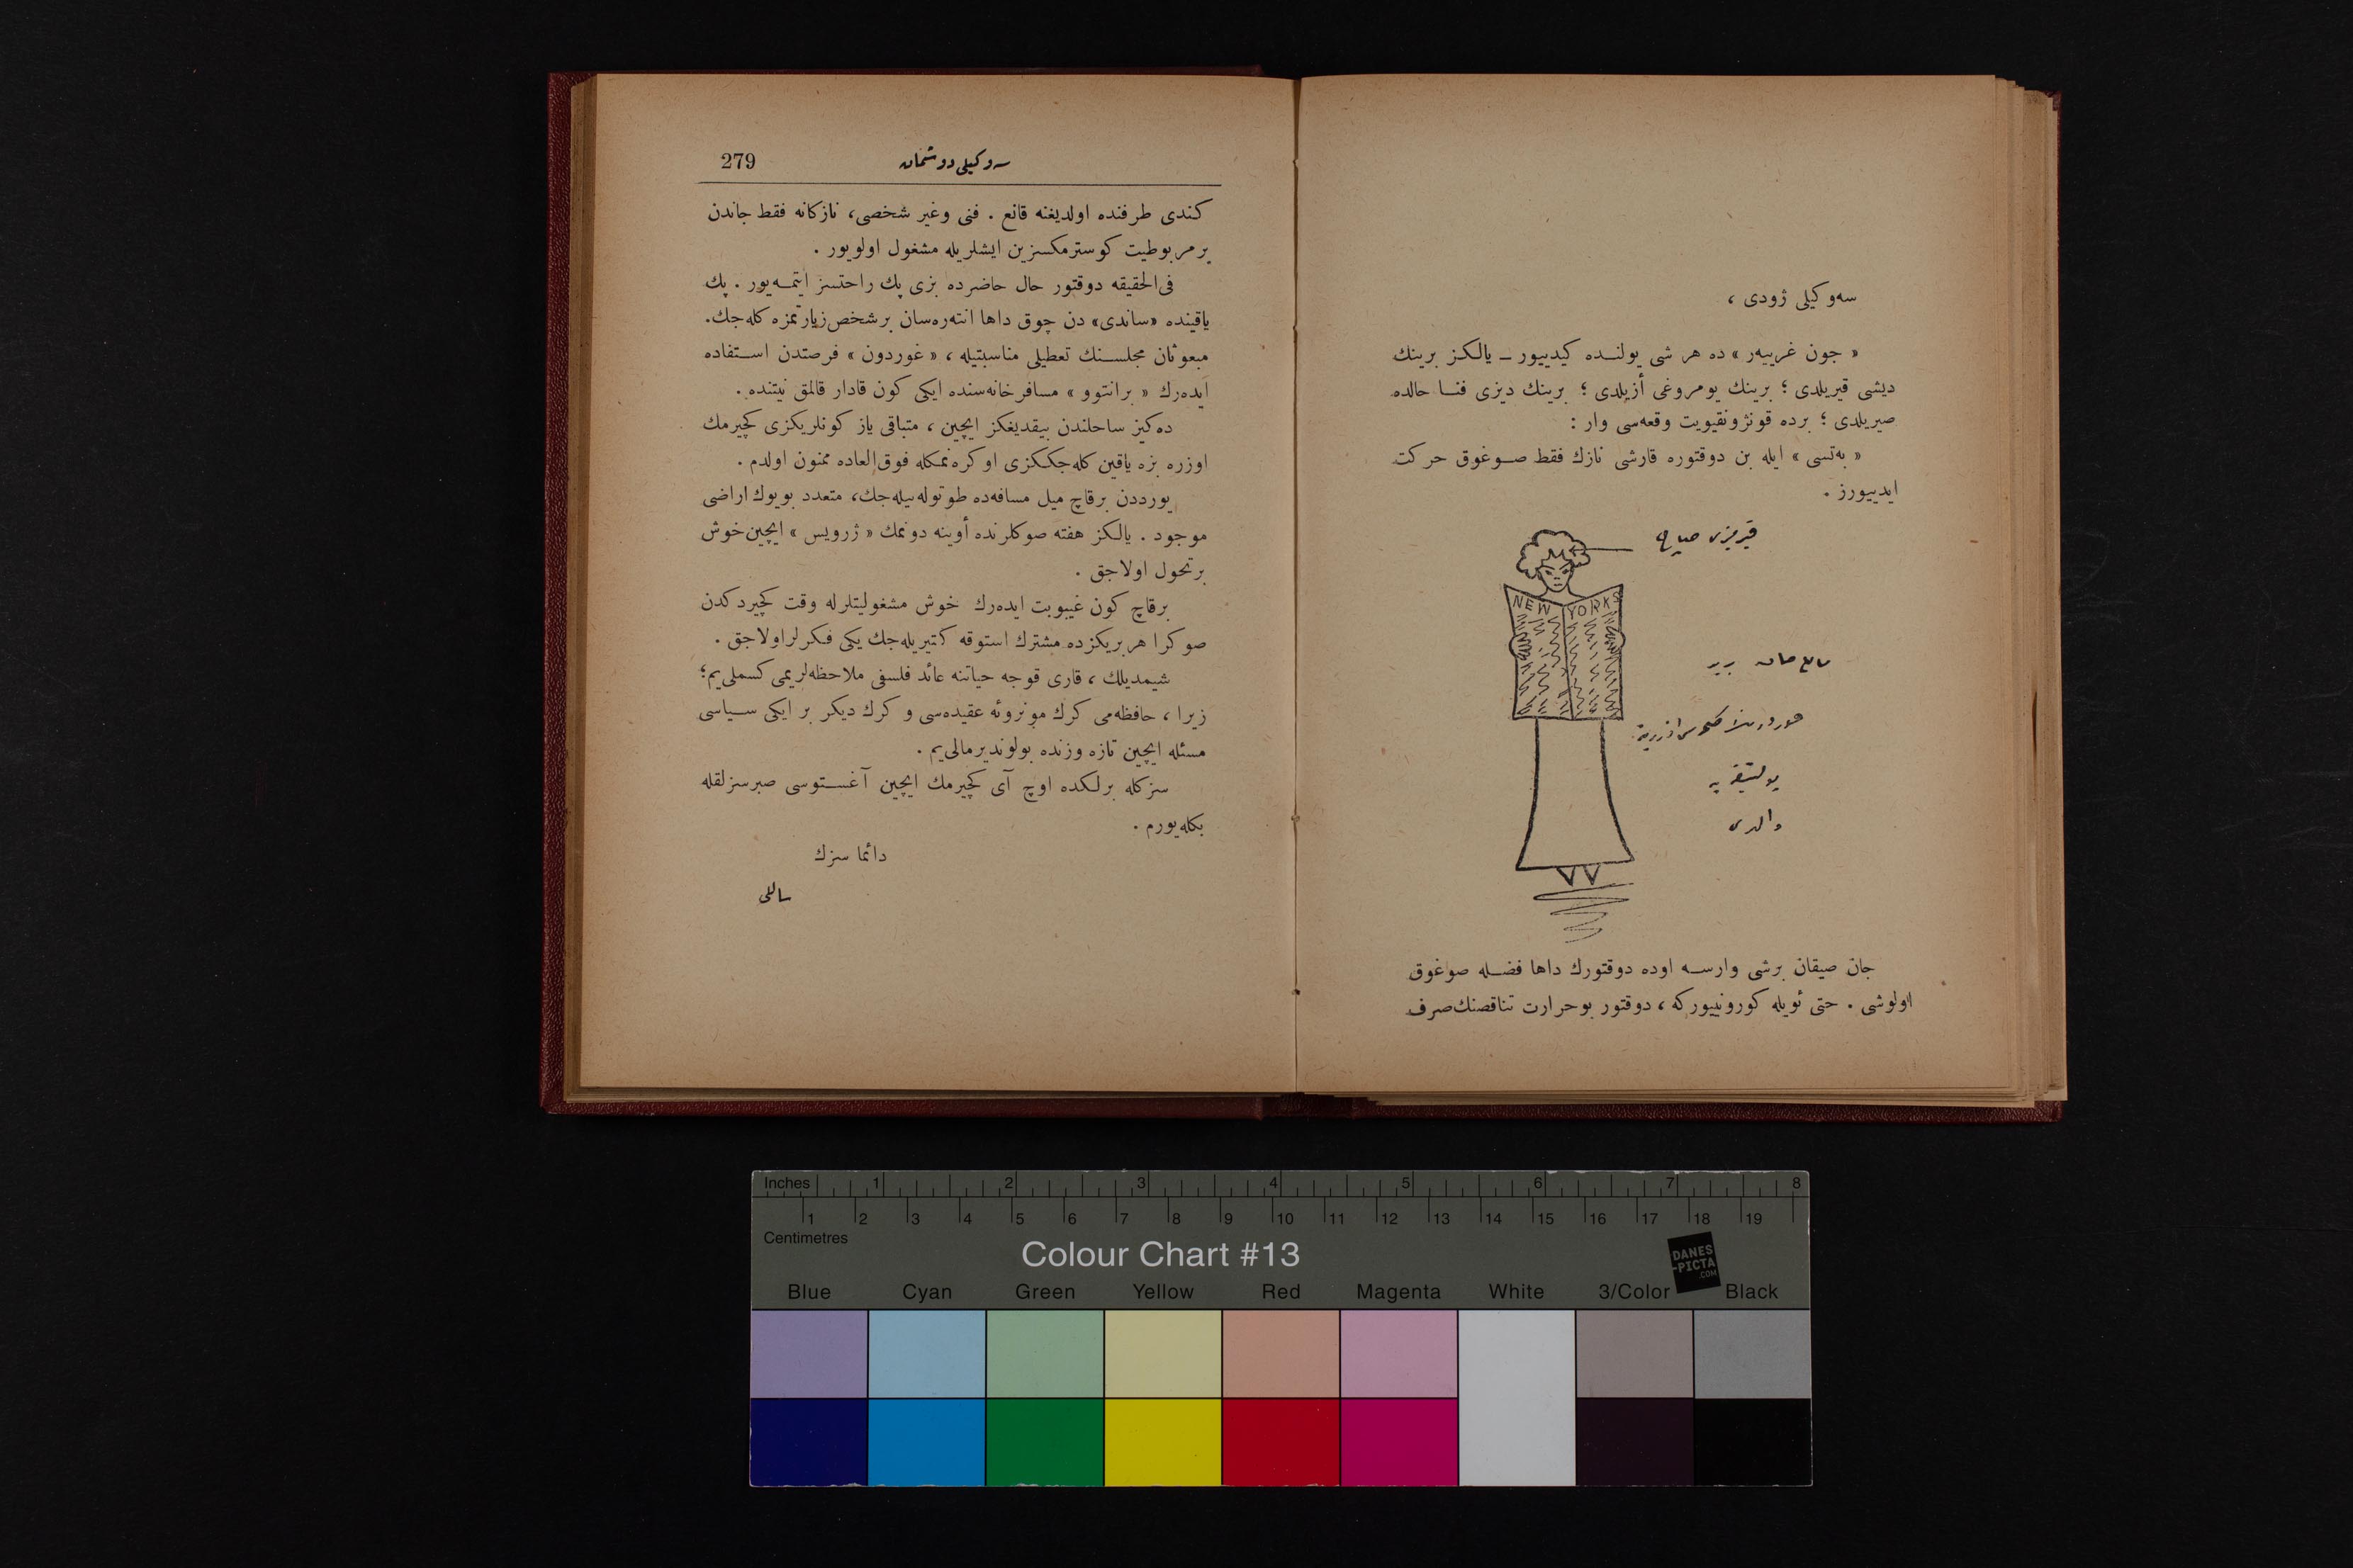 سه‌وكیلی ژودی ،
« جون غرییه‌ر » ده هر شی یولنـده كیدییور ــ یالكـز برینك
دیشی قیریلدی ؛ برینك یومروغی أزیلدی ؛ برینك دیزی فنـا حالده
صیریلدی ؛ برده قونژونقیویت وقعه‌سی وار :
« به‌تسی » ایله بن دوقتوره قارشی نازك فقط صـوغوق حركت
ایدییورز .
NEW YORK
جان صیقان برشی وارسـه اوده دوقتورك داها فضـله صوغوق
اولوشی . حتی ئویله كورونییوركه ، دوقتور بوحرارت تناقصنك صرف
سه‌وكیلی دوشمان
279
كندی طرفنده اولدیغنه قانع . فنی وغیر شخصی، نازكانه فقط جاندن
بر مربوطیت كوسترمكسزین ایشلریله مشغول اولویور .
فی‌الحقیقه دوقتور حال حاضرده بزی پك راحتسز ایتمـه‌یور . پك
یاقینده «ساندی» دن چوق داها انته‌ره‌سان بر شخص زیارتمزه كله‌جك.
مبعوثان مجلسـنك تعطیلی مناسبتیله ، « غوردون » فرصتدن اسـتفاده
ایده‌رك « برانتوو » مسافر خانه‌سنده ایكی كون قادار قالمق نیتنده .
ده‌كیز ساحلندن بیقدیغكز ایچین ، متباقی یاز كونلریكزی كچیرمك
اوزره بزه یاقین كله‌جكـكزی اوكره‌نمكله فوق‌العاده ممنون اولدم .
یورددن برقاچ میل مسافه‌ده طوتوله‌بیله‌جك، متعدد بویوك اراضی
موجود . یالكز هفته صوكلرنده أوینه دونمك « ژرویس » ایچین خوش
برتحول اولاجق .
برقاچ كون غیبوبت ایده‌رك خوش مشغولیتلرله وقت كچیردكدن
صوكرا هر بریكزده مشترك استوقه كتیریله‌جك یكی فكرلر اولاجق .
شیمدیلك ، قاری قوجه حیاتنه عائد فلسفی ملاحظه‌لریمی كسملی‌یم؛
زیرا ، حافظه‌می كرك مونروئه عقیده‌سی و كرك دیكر بر ایكی سـیاسی
مسئله ایچین تازه وزنده بولوندیرمالی‌یم .
سزكله برلكده اوچ آی كچیرمك ایچین آغسـتوسی صبرسزلقله
بكله‌یورم .
دائما سزك
ساللی
Inches 1 2 3 4 5 6 7 8
1 2 3 4 5 6 7 8 9 10 11 12 13 14 15 16 17 18 19
Centimetres
Colour Chart #13
DANES
-PICTA
.COM
Blue Cyan Green Yellow Red Magenta White 3/Color Black